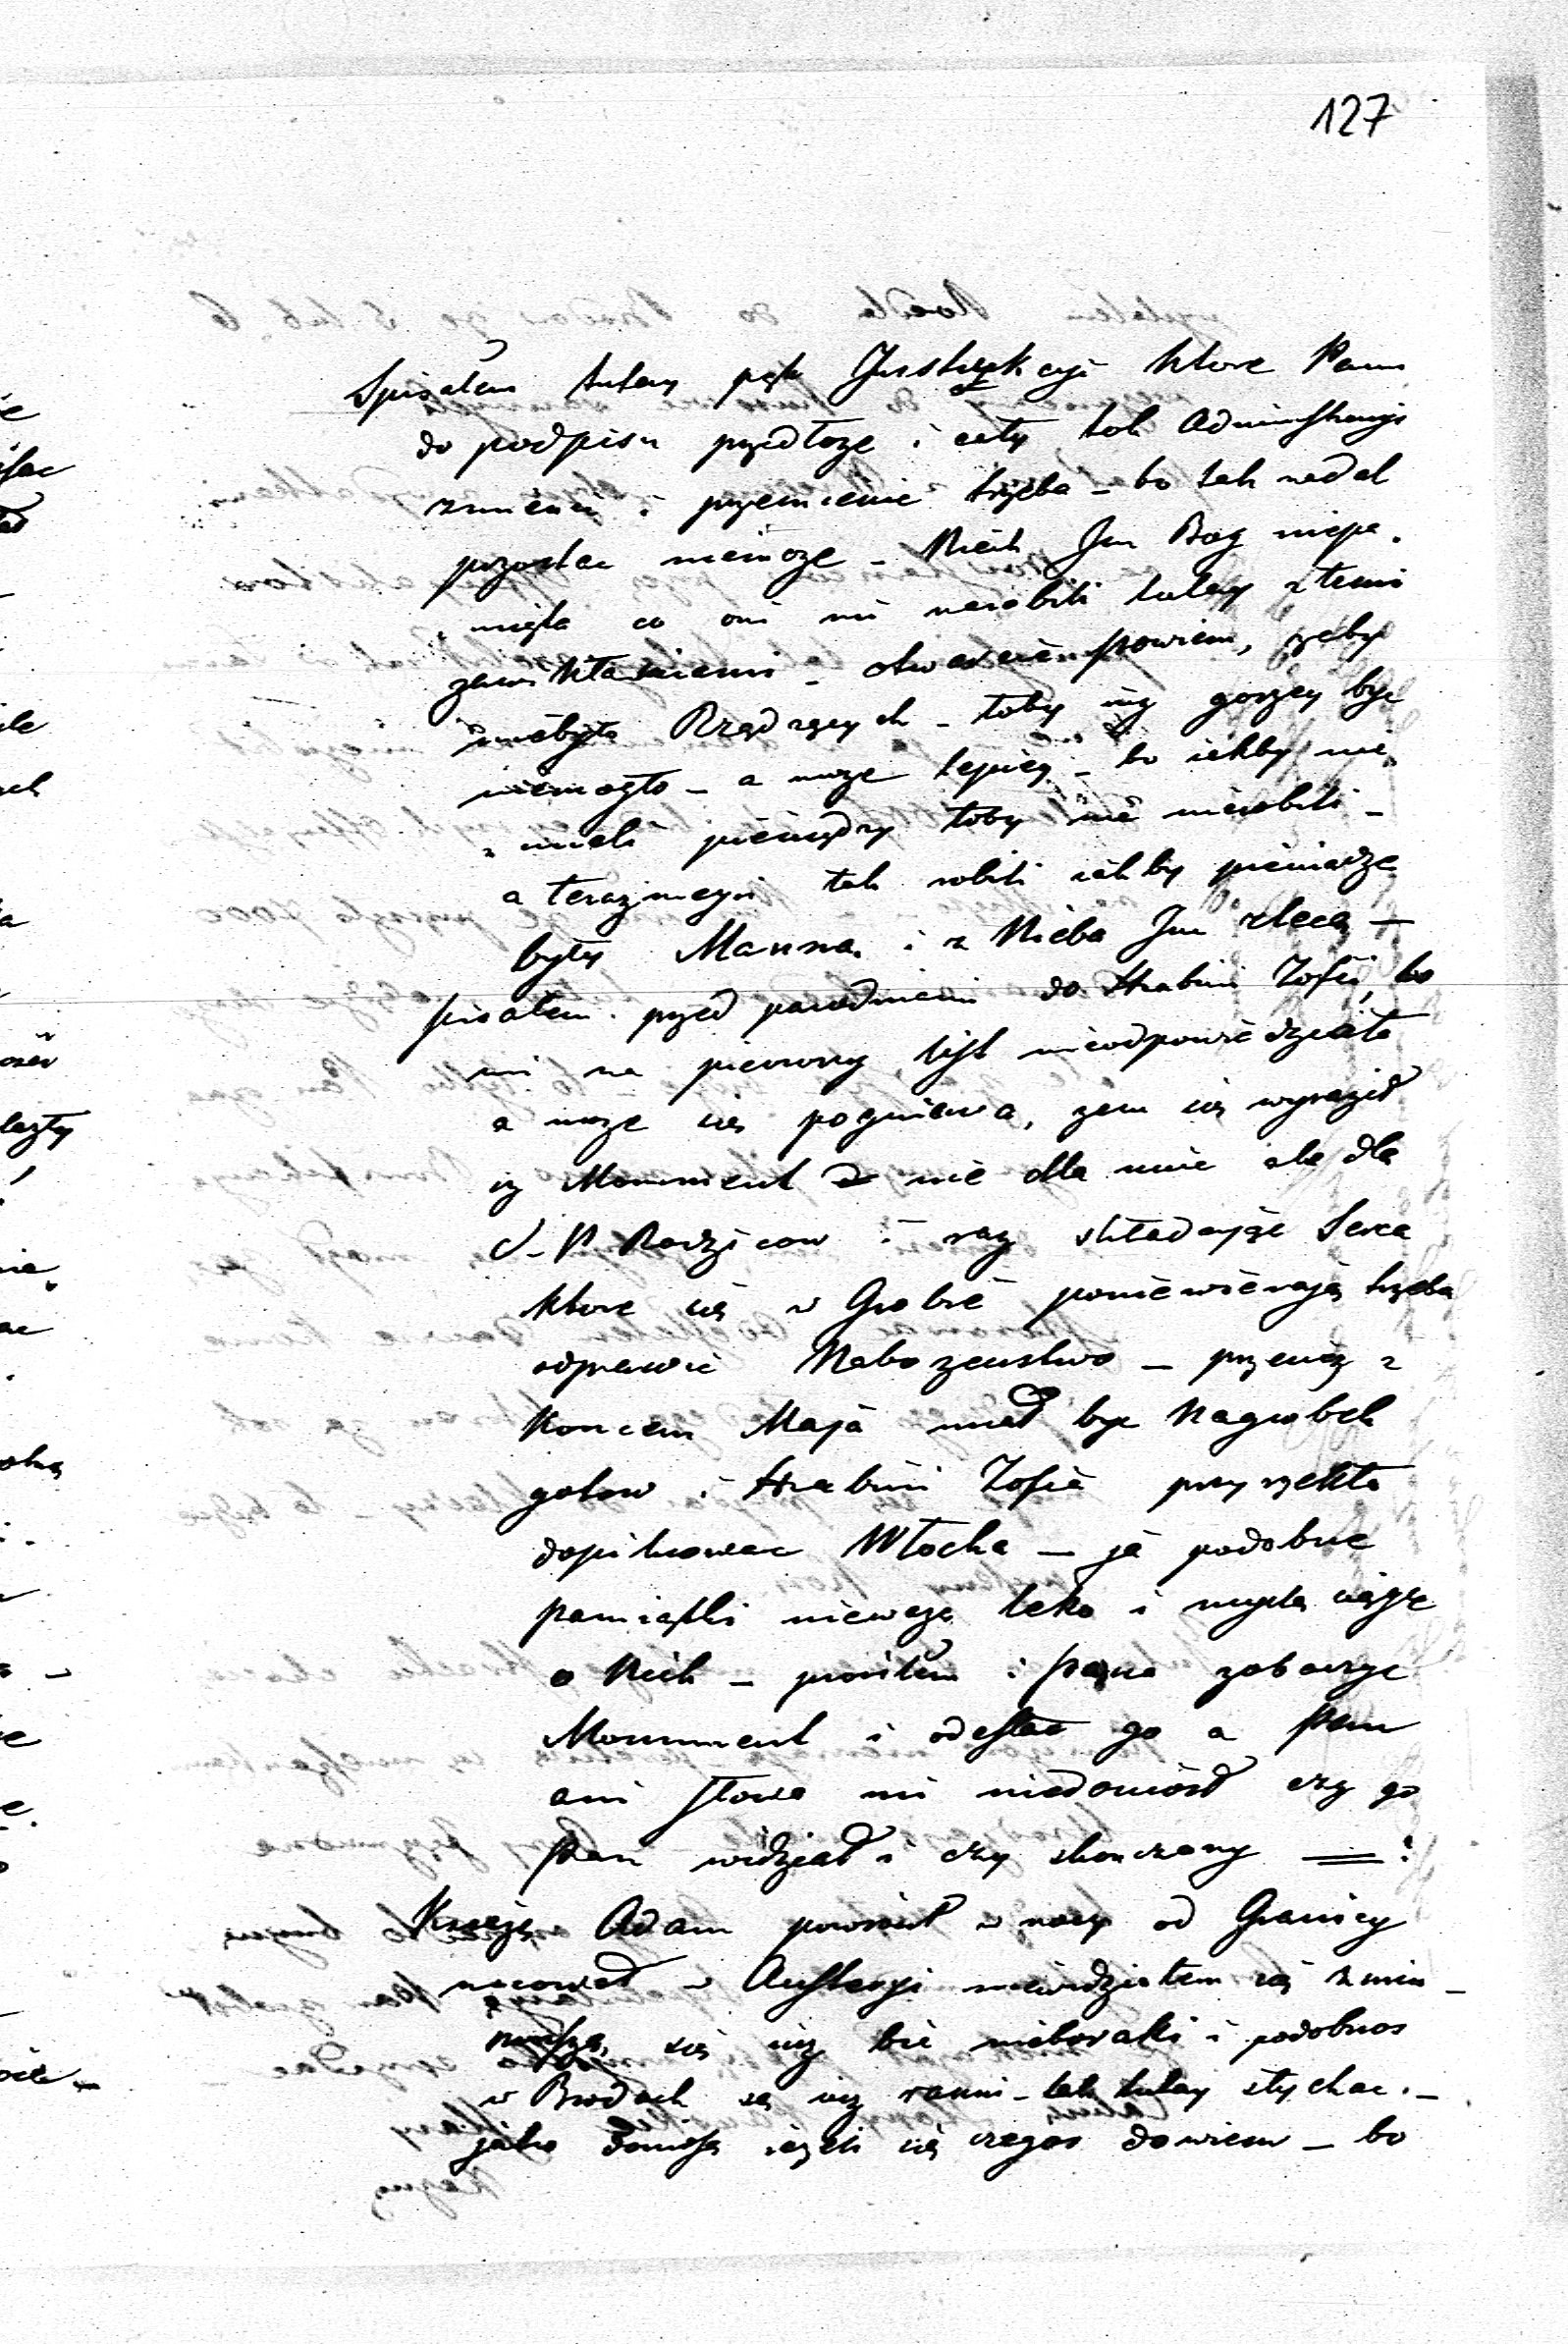 127
Spisałem tutay pęk Justrukcyi ktore Panu
do podpisu przedłożę i cały tok Administracyi
zmienić i przemienic trzeba – bo tak nadal
pozostac niemoże – Niech Jm Bog niepa-
mięta co oni mi narobili tutay z temi
zawikłaniami – otwarcie powiem, żeby
niebyło Rządzących – toby iuż gorzey byc
niemogło – a może lepiey – bo iakby nie
mieli pieniędzy toby nie nierobili –
a teraz tak robili iakby pieniądze
były Manna i z Nieba Jm zlecą –
pisałem przed parodniemi do Hrabini Zofii, bo
mi na pierwszy list nieodpowiedziała
a może się pogniewa, żem się wyraził
iż Monument nie dla mnie ale dla
S. P. Rodzicow i raz składaiąc Serca
ktore się w Grobie poniewieraią trzeba
odprawić Nabozenstwo – przeciez z
koncem Maja miał byc Nagrobek
gotow i Hrabini Zofia przyrzekła
dopilnowac Włocha – ja podobne
pamiątki nieważę leko i myslę ciągle
o Nich – prosiłem i Pana zobaczyc
Monument i odesłac go a Pan
ani słowa mi niedoniosł czy go
Pan widział i czy skonczony = !
Xsiąże Adam powrócił w nocy od Granicy
nocował w Austeryi niewidziałem się z nim –
muszą się iuż bic nieboraki i podobnos
w Brodach są iuż ranni – tak tutay słychac. –
jutro doniosę ieżeli się czegos dowiem – bo